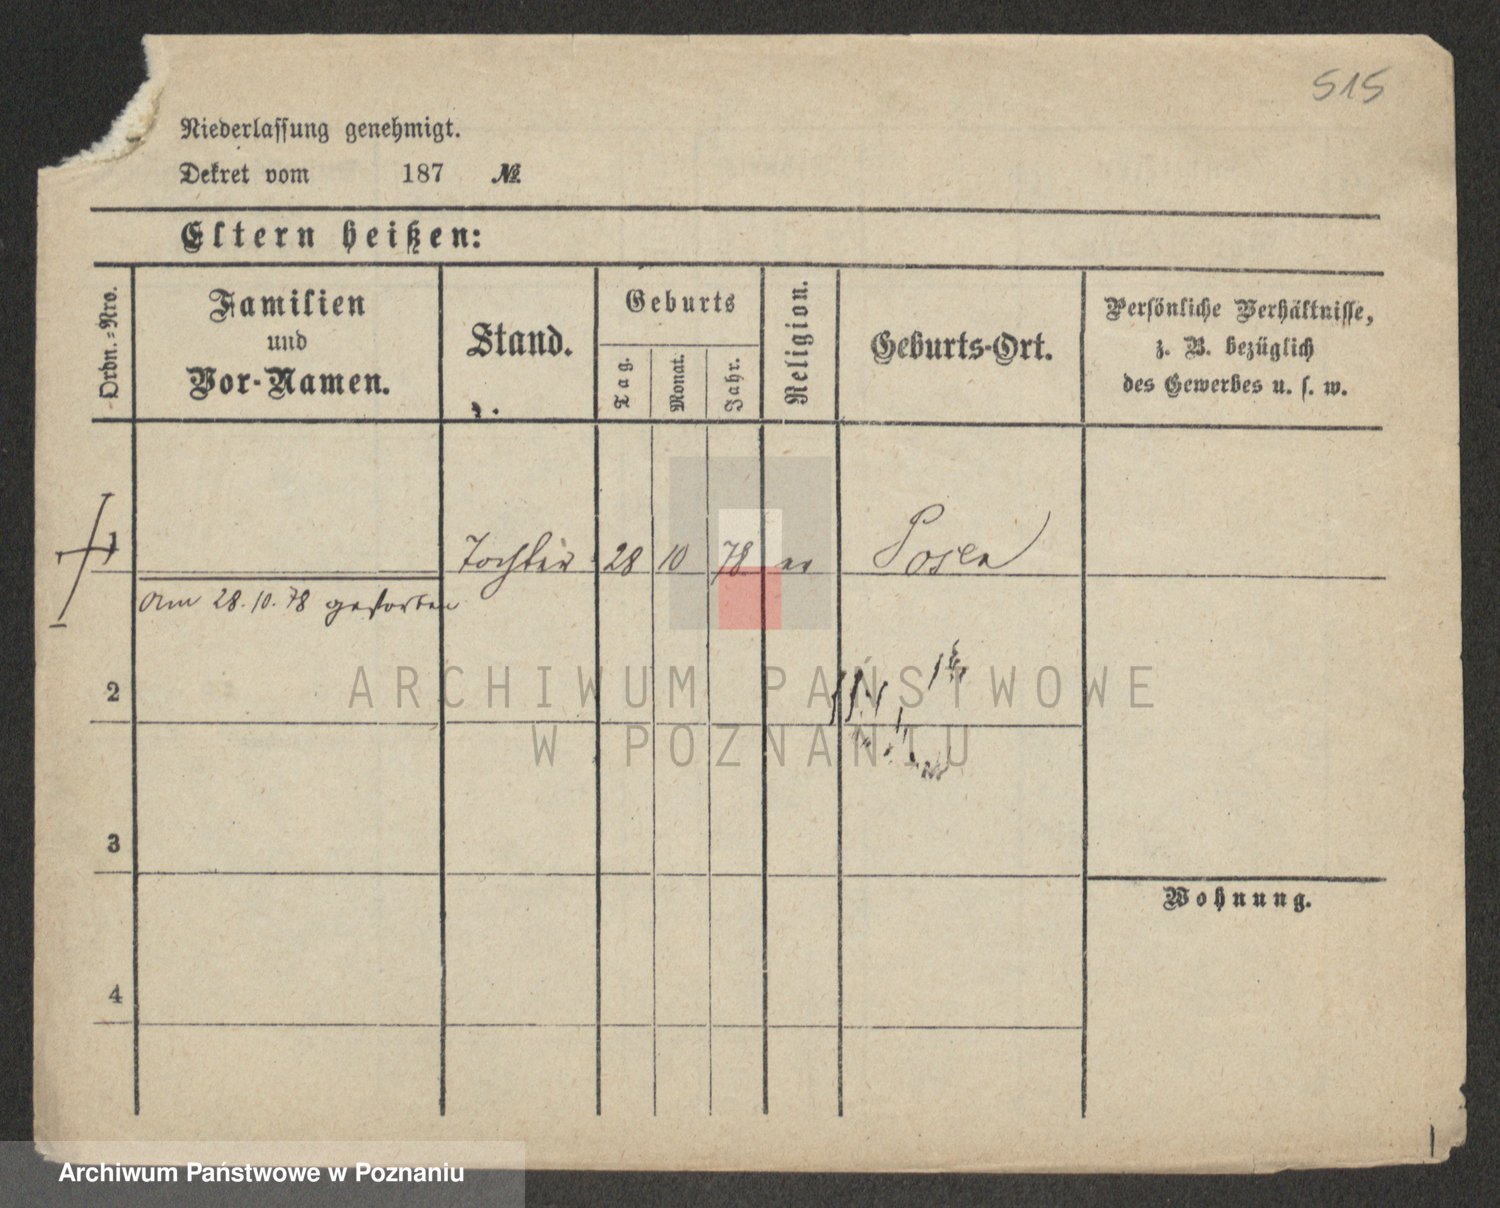 515
Niederlassung genehmigt.
Dekret vom 187 №
Eltern heißen:
Ordn.-Nro.
Familien
und
Vor-Namen.
Stand.
Geburts
Tag.
Monat.
Jahr.
Religion.
Geburts-Ort.
Persönliche Verhältnisse,
z. B. bezüglich
des Gewerbes u. s. w.
1 Tochter 28 10 78 Posen
Am 28.10.78 gestorben
2
3
4
Wohnung.
ARCHIWUM PAŃSTWOWE
W POZNANIU
Archiwum Państwowe w Poznaniu